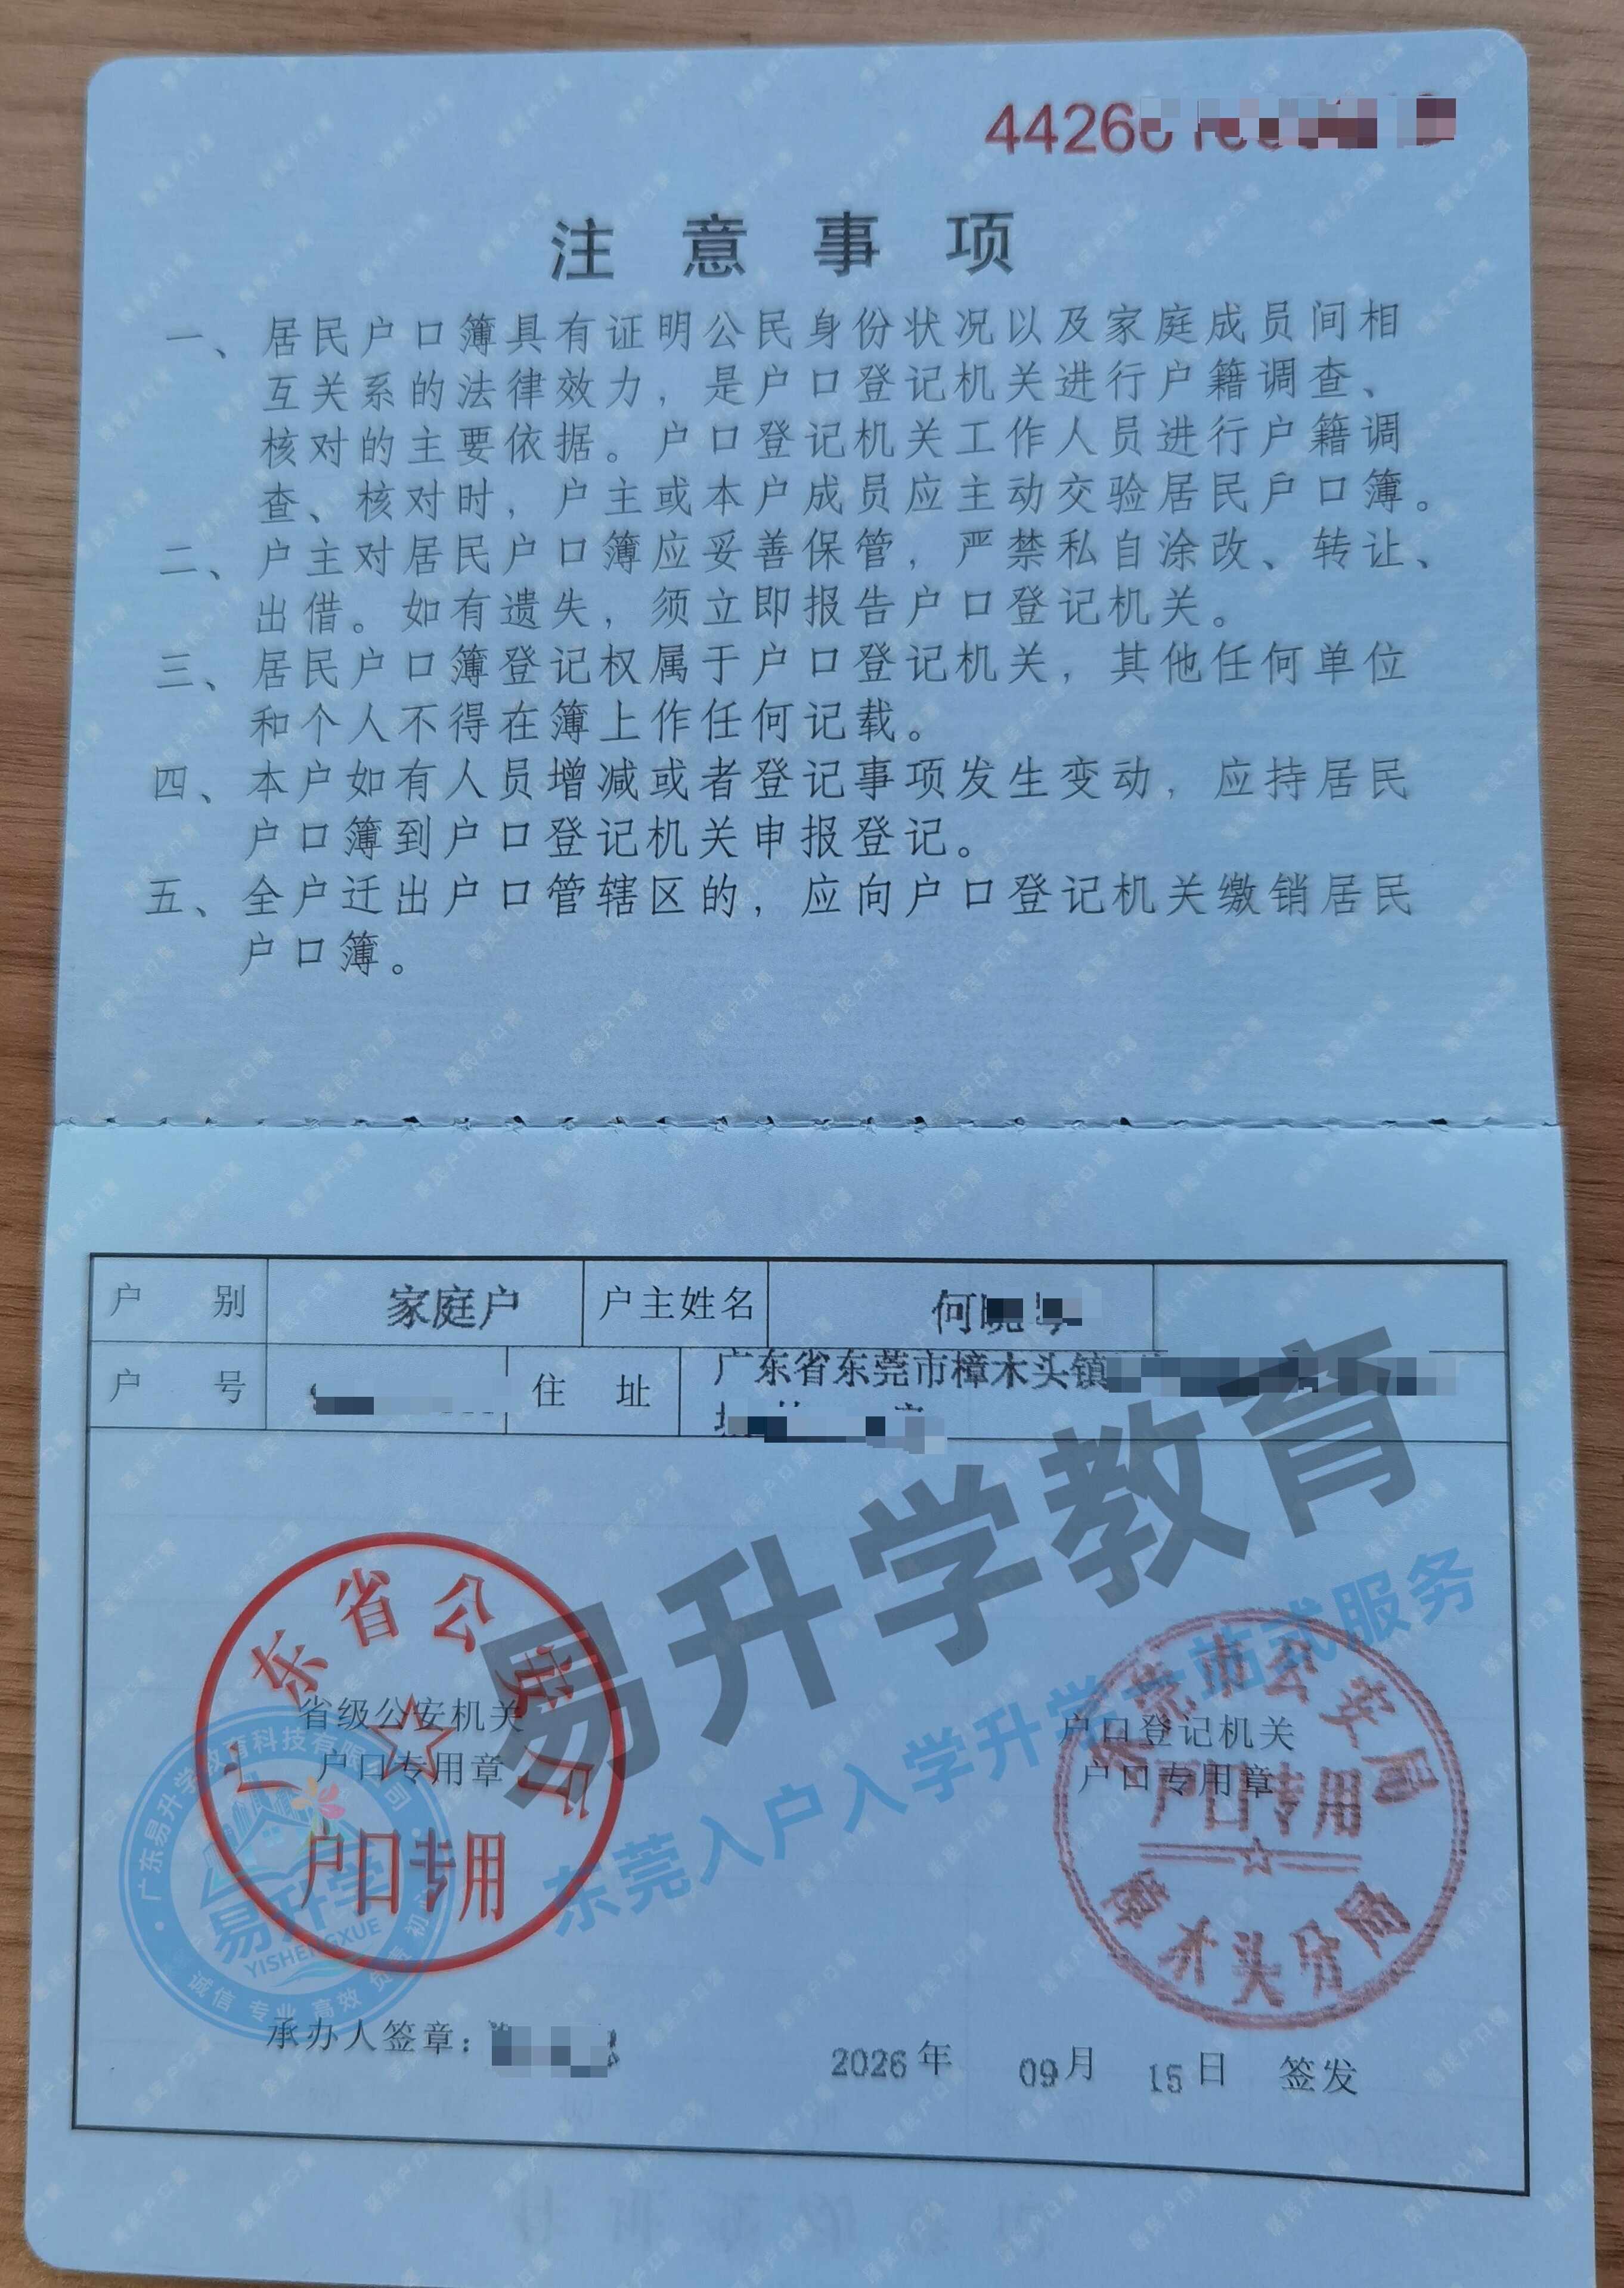 4426
注意事项
一、居民户口簿具有证明公民身份状况以及家庭成员间相
互关系的法律效力，是户口登记机关进行户籍调查、
核对的主要依据。户口登记机关工作人员进行户籍调
查、核对时，户主或本户成员应主动交验居民户口簿。
二、户主对居民户口簿应妥善保管，严禁私自涂改、转让、
出借。如有遗失，须立即报告户口登记机关。
三、居民户口簿登记权属于户口登记机关，其他任何单位
和个人不得在簿上作任何记载。
四、本户如有人员增减或者登记事项发生变动，应持居民
户口簿到户口登记机关申报登记。
五、全户迁出户口管辖区的，应向户口登记机关缴销居民
户口簿。
户别 家庭户 户主姓名 何
户号 住址 广东省东莞市樟木头镇
易升学教育
东莞入户入学升学一站式服务
广东省公安厅
省级公安机关
户口专用章
户口专用
东莞市公安局
户口登记机关
户口专用章
户口专用
樟木头分局
广东易升学教育科技有限公司
易升学
YISHENGXUE
诚信 专业 高效 负责 初心
承办人签章：
2026年 09月 15日 签发